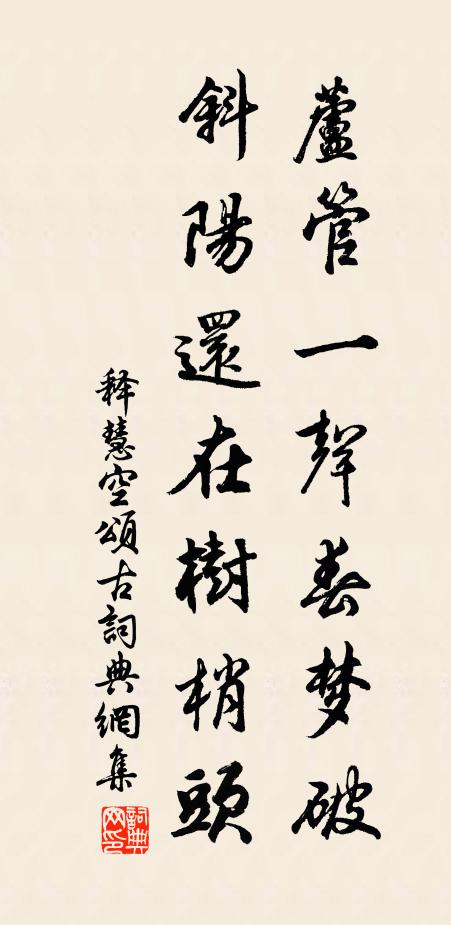 蘆管一聲春梦破
斜陽還在樹梢頭
释慧空頌古詞典網集
詞典
网印